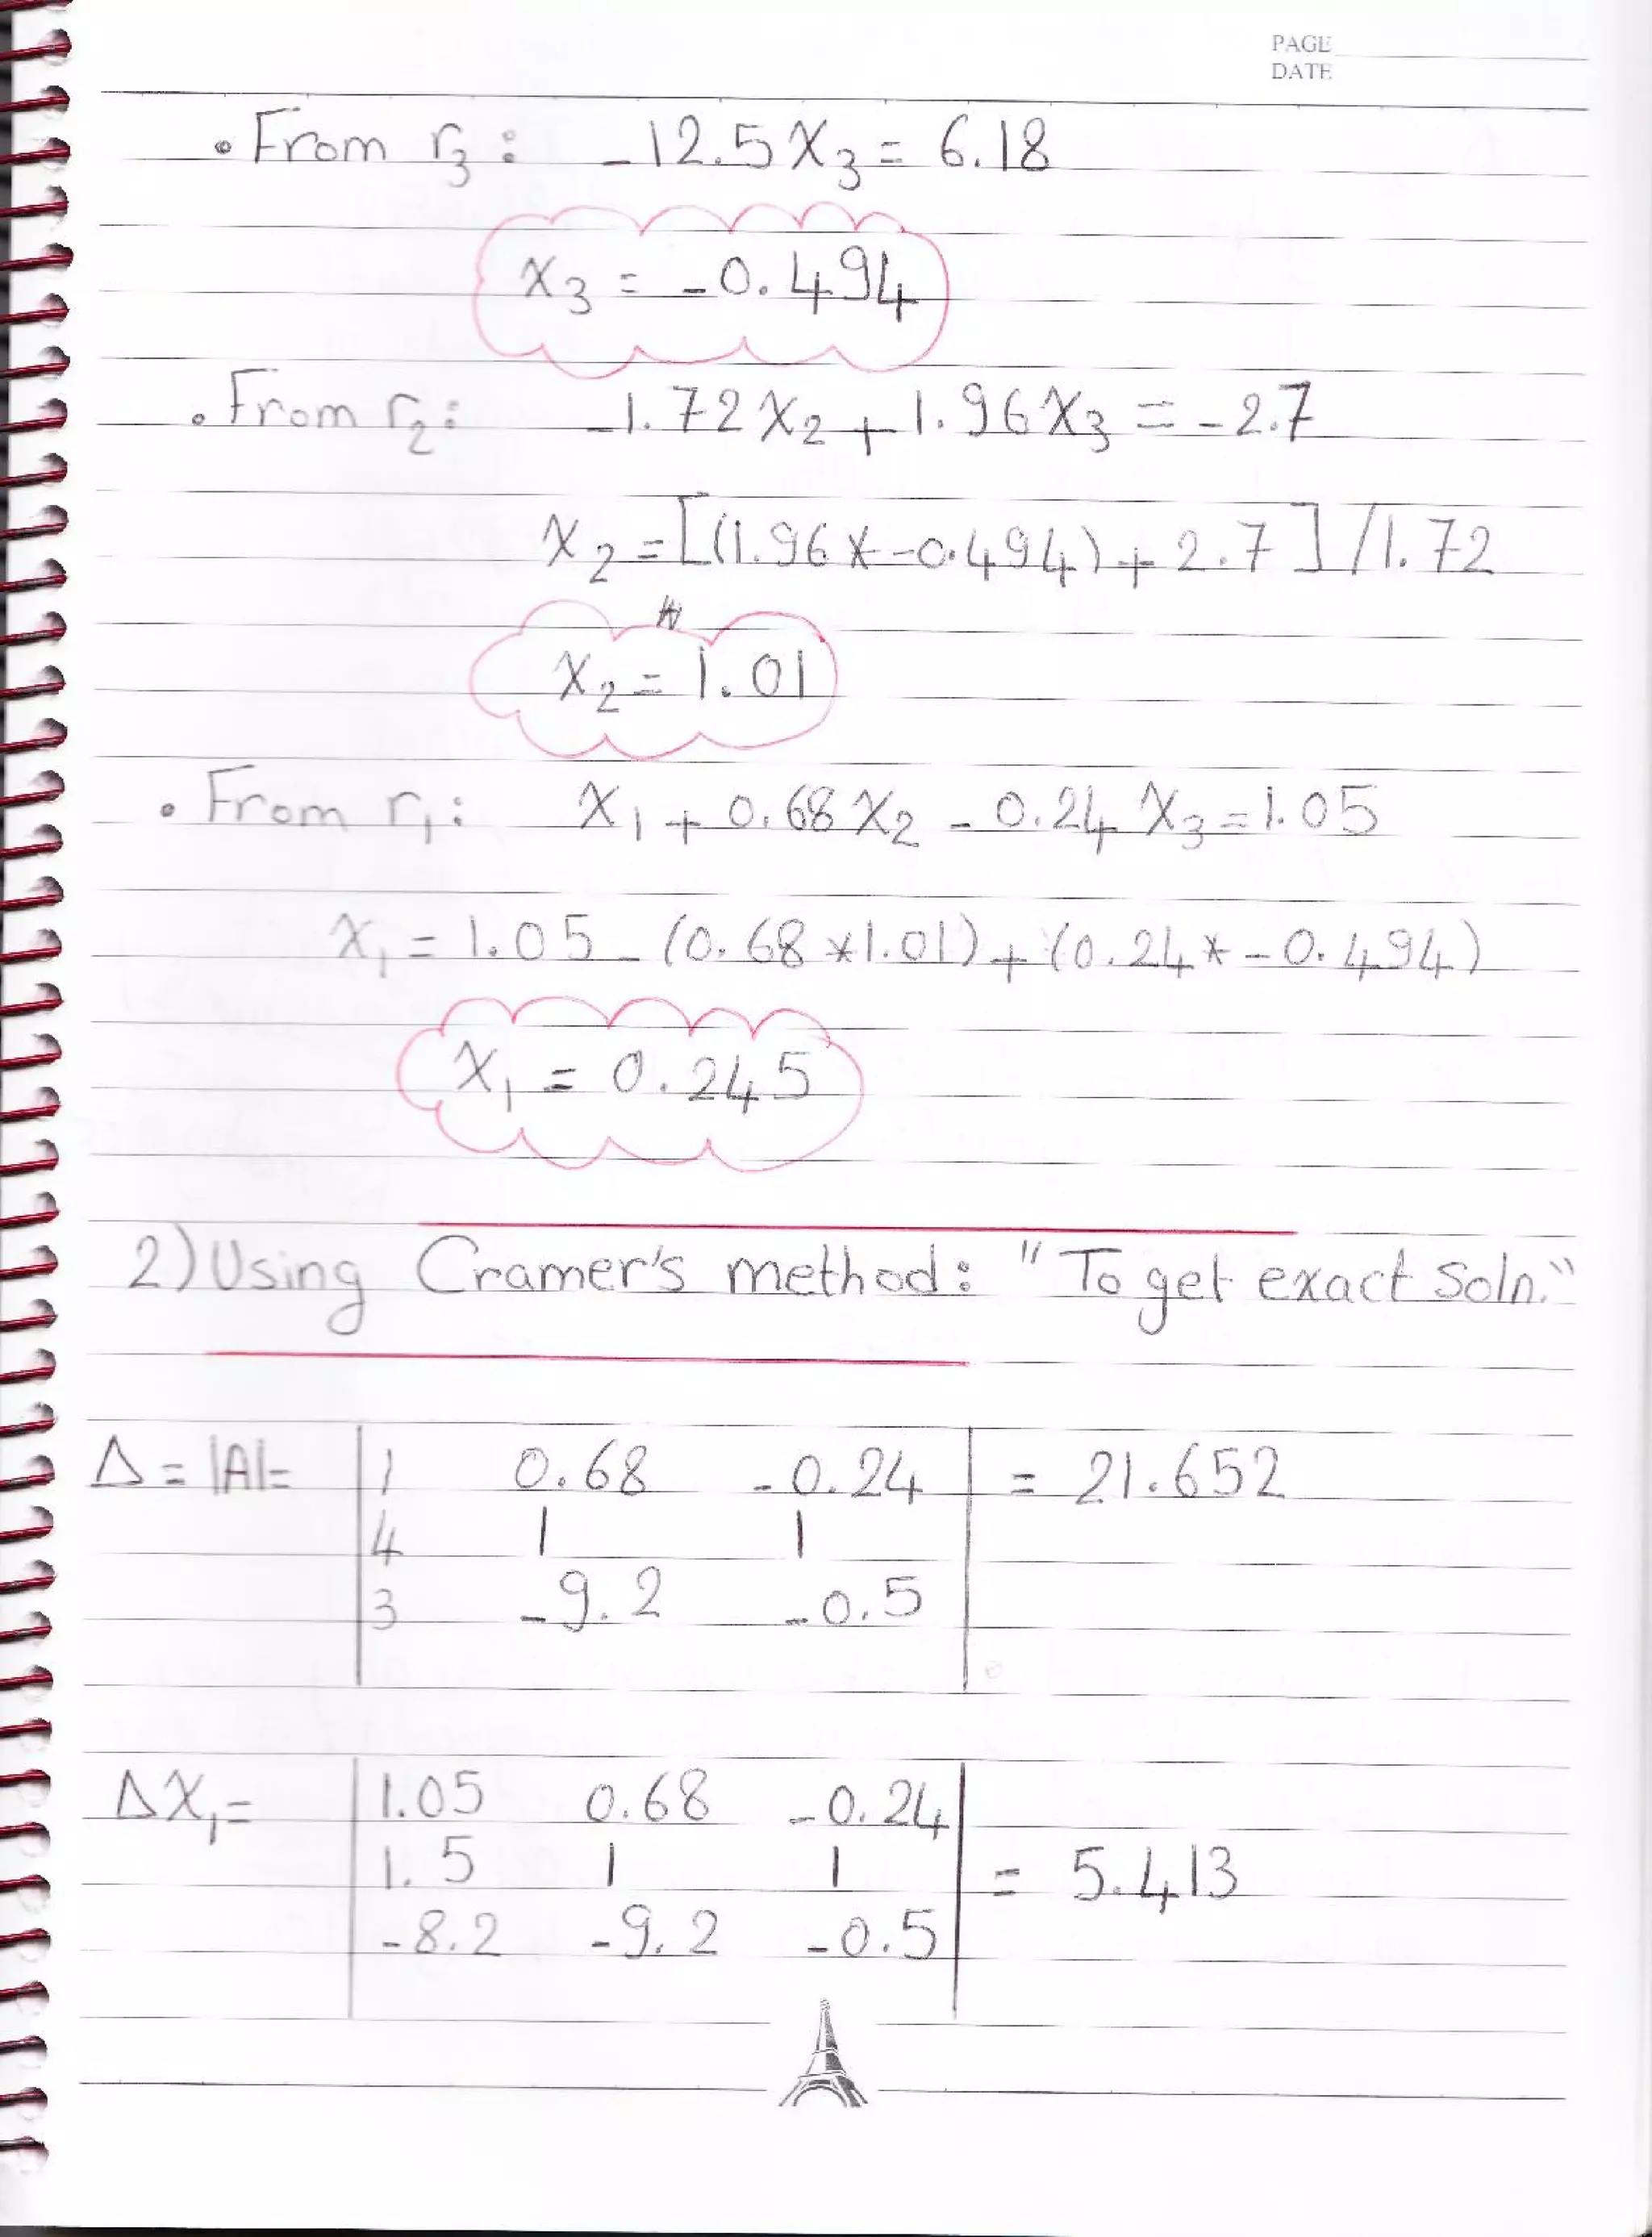 PAGE
DATE
• From r₃ : -12.5 X₃ = 6.18
X₃ = -0.494
• From r₂ : -1.72 X₂ + 1.96 X₃ = -2.7
X₂ = [(1.96 * -0.494) + 2.7] / 1.72
X₂ = 1.01
• From r₁ : X₁ + 0.68 X₂ - 0.24 X₃ = 1.05
X₁ = 1.05 - (0.68 * 1.01) + (0.24 * -0.494)
X₁ = 0.245
2) Using Cramer's method : "To get exact Soln."
Δ = |A| = | 1 0.68 -0.24 | = 21.652
4 1 1
3 -9.2 -0.5
ΔX₁ = | 1.05 0.68 -0.24 |
1.5 1 1 = 5.413
-8.2 -9.2 -0.5